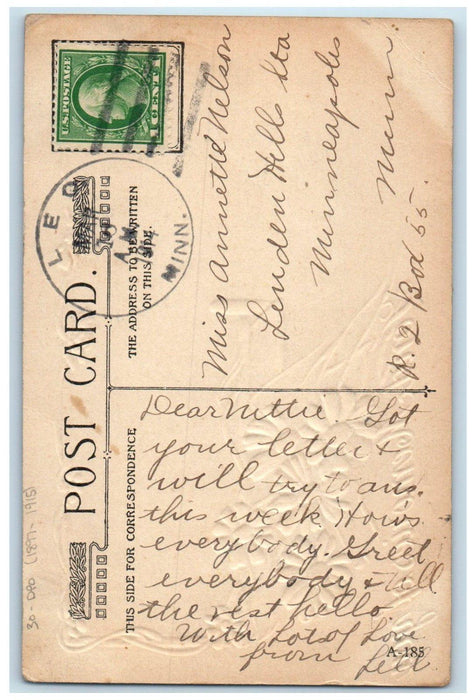 U.S. POSTAGE
1 CENT 1
LEO
A.M.
MINN.
POST CARD.
THE ADDRESS TO BE WRITTEN
ON THIS SIDE.
THIS SIDE FOR CORRESPONDENCE
Miss Annette Nelson
Linden Hills Sta
Minneapolis
Minn.
R. 2 Box 55.
Dear Nettie. Got
your letter &
will try to ans.
this week. How's
everybody. Greet
everybody & tell
the rest hello
With Lots of Love
from Lell
A-185
30 - DPO (1897-1915)